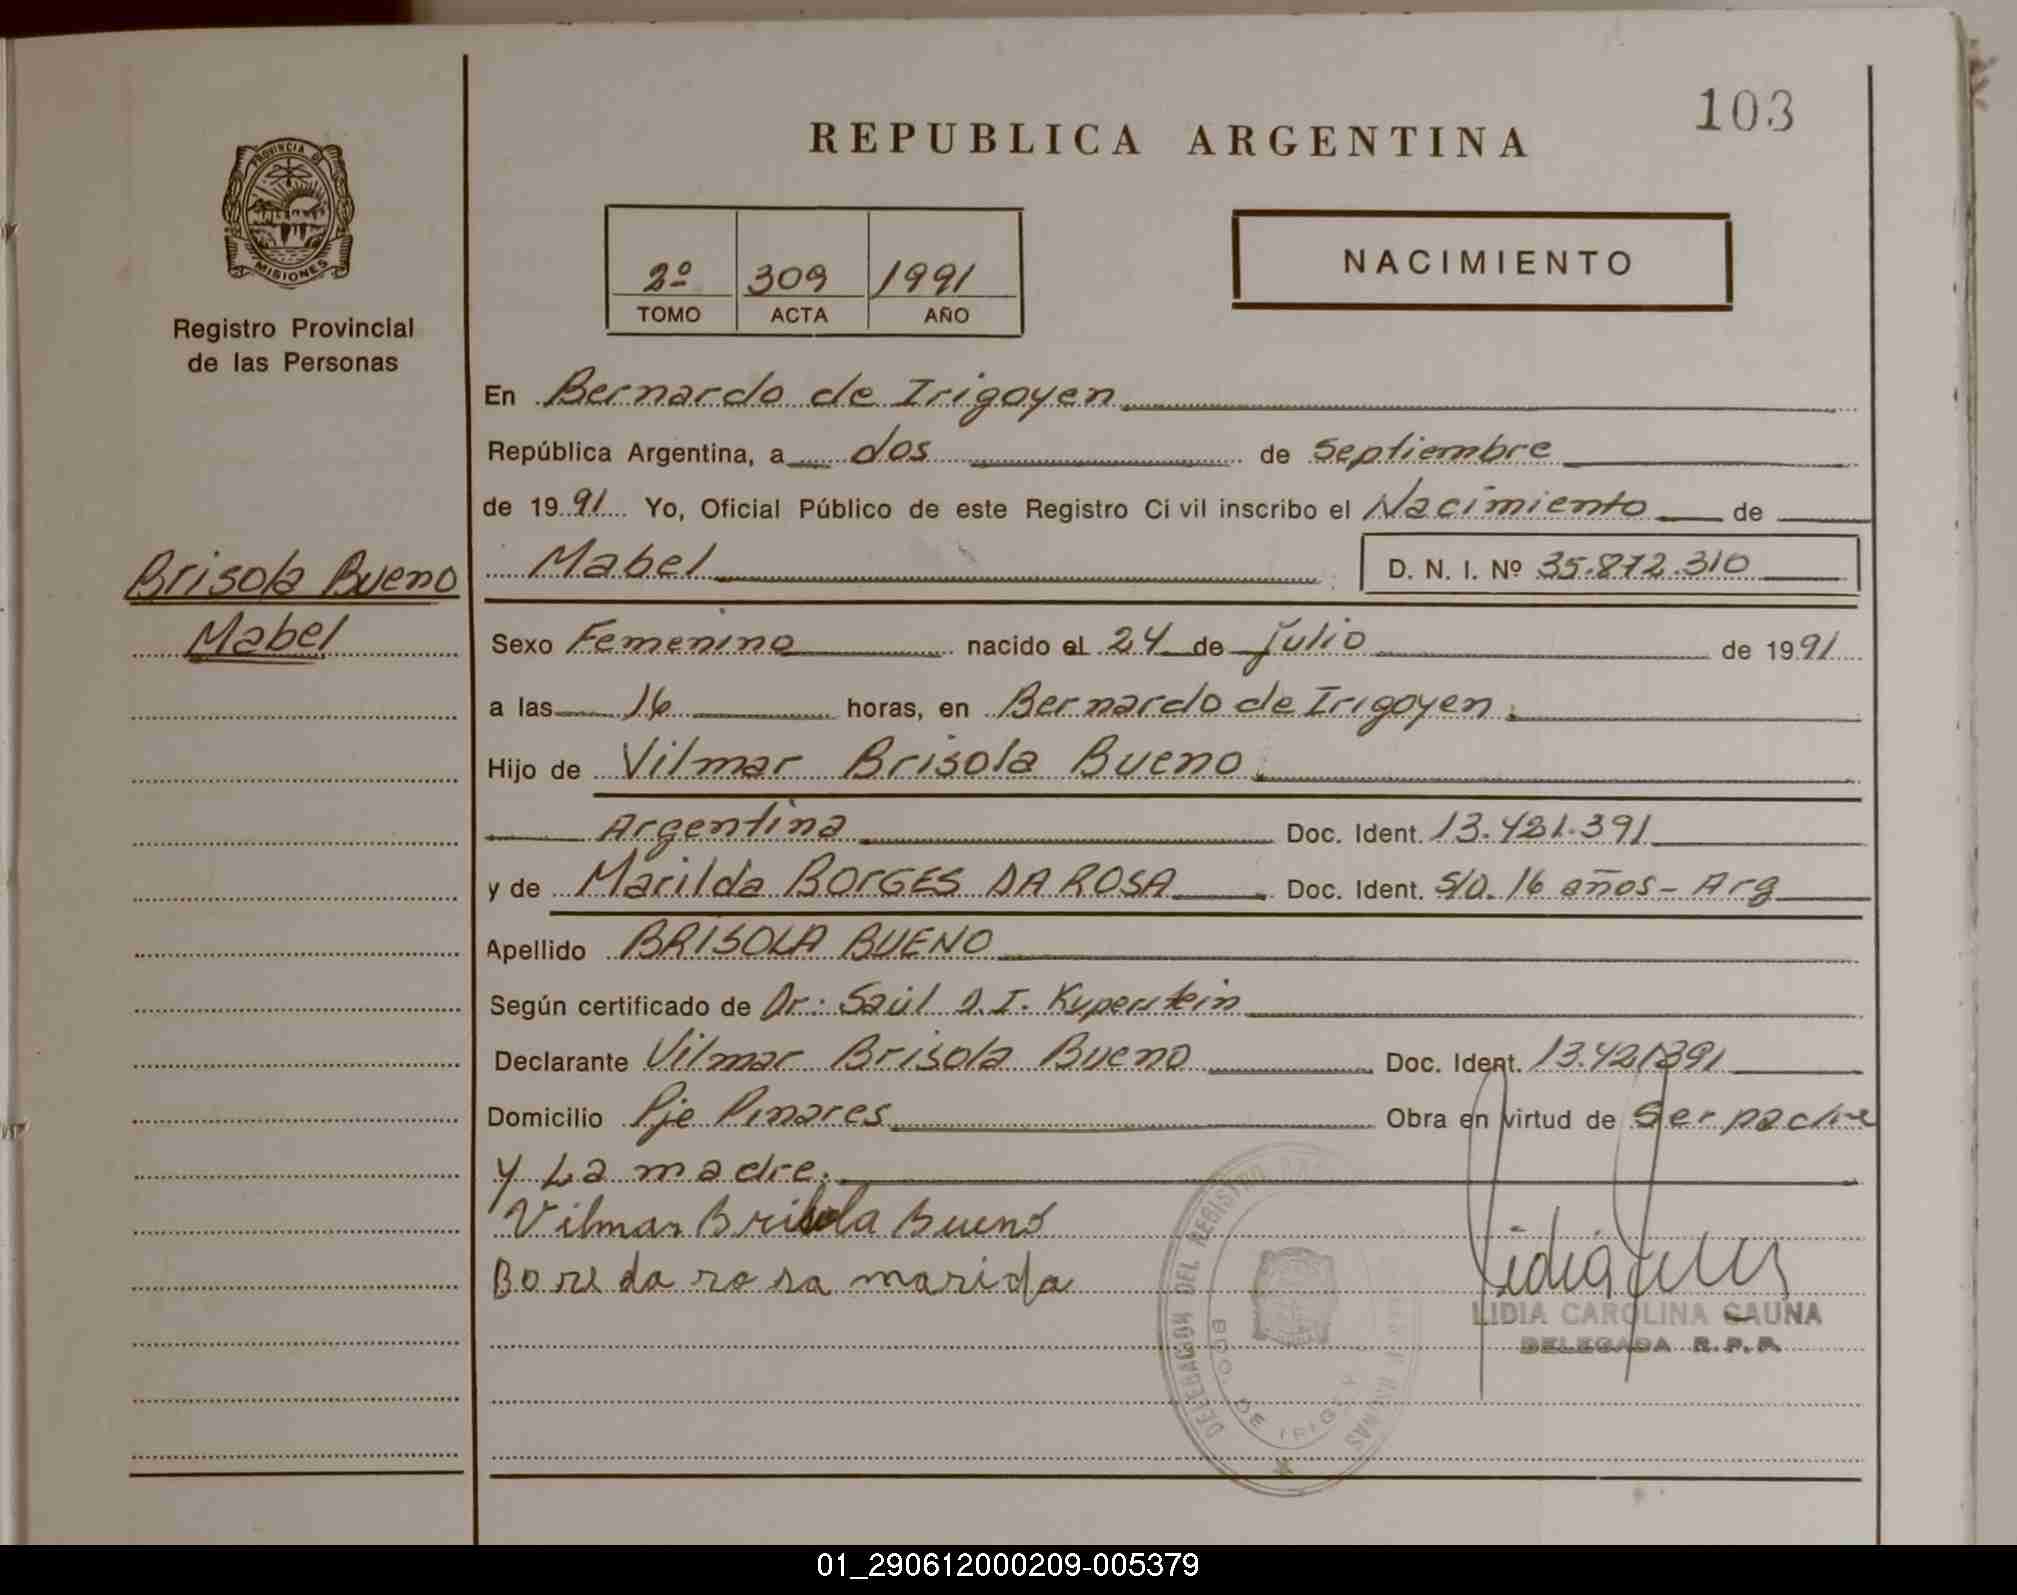 103
REPUBLICA ARGENTINA
PROVINCIA DE
MISIONES
Registro Provincial
de las Personas
2º 309 1991
TOMO ACTA AÑO
NACIMIENTO
En Bernardo de Irigoyen
República Argentina, a dos de Septiembre
de 1991 Yo, Oficial Público de este Registro Civil inscribo el Nacimiento de
Brisola Bueno
Mabel
Mabel D. N. I. Nº 35.872.310
Sexo Femenino nacido el 24 de Julio de 1991
a las 16 horas, en Bernardo de Irigoyen.
Hijo de Vilmar Brisola Bueno.
Argentina Doc. Ident. 13.421.391
y de Marilda BORGES DA ROSA Doc. Ident. S/D. 16 años - Arg
Apellido BRISOLA BUENO
Según certificado de Dr: Saúl D. I. Kuperstein
Declarante Vilmar Brisola Bueno Doc. Ident. 13.421391
Domicilio Pje Pinares Obra en virtud de Ser padre
y La madre.
Vilmar Brisola Bueno
da rosa marida
LIDIA CAROLINA GAUNA
DELEGADA R. P. P.
DELEGACION DEL REGISTRO
BDO. DE IRIGOY
01_290612000209-005379